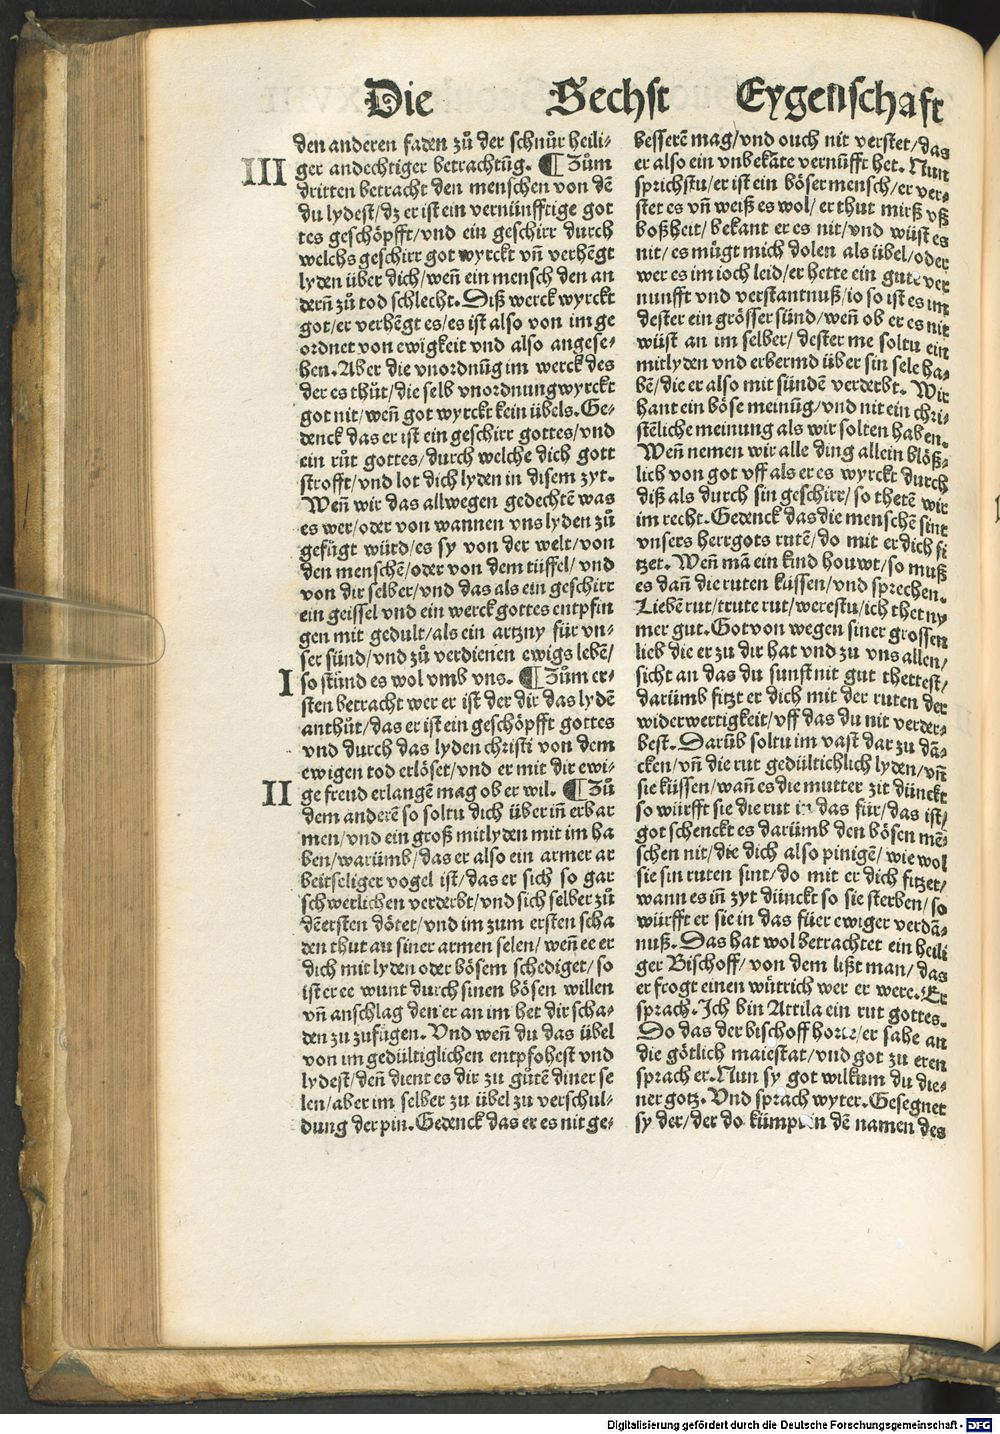 Die Sechst Eygenschafft
den anderen faden zů der schnůr heili-
III
ger andechtiger betrachtūg. ¶ Zům
dritten betracht den menschen von dē
du lydest/dz er ist ein vernünfftige got
tes geschöpfft/vnd ein geschirr durch
welchs geschirr got wyrckt vn̄ verhēgt
lyden über dich/wen̄ ein mensch den an
dern̄ zů tod schlecht. Diß werck wyrckt
got/er verhēgt es/es ist also von im ge
ordnet von ewigkeit vnd also angese-
hen. Aber die vnordnūg im werck des
der es thůt/die selb vnordnung wyrckt
got nit/wen̄ got wyrckt kein übels. Ge-
denck das er ist ein geschirr gottes/vnd
ein růt gottes/durch welche dich gott
strofft/vnd lot dich lyden in disem zyt.
Wen̄ wir das allwegen gedechtē was
es wer/oder von wannen vns lyden zů
gefügt würd/es sy von der welt/von
den menschē/oder von dem tüffel/vnd
von dir selber/vnd das als ein geschirr
ein geissel vnd ein werck gottes entpfin
gen mit gedult/als ein artzny für vn-
ser sünd/vnd zů verdienen ewigs lebē/
I
so stünd es wol vmb vns. ¶ Zům er-
sten betracht wer er ist der dir das lydē
anthůt/das er ist ein geschöpfft gottes
vnd durch das lyden christi von dem
ewigen tod erlöset/vnd er mit dir ewi-
II
ge freud erlangē mag ob er wil. ¶ Zů
dem anderē so soltu dich über in̄ erbar
men/vnd ein groß mitlyden mit im ha
ben/warümb/das er also ein armer ar
beitseliger vogel ist/das er sich so gar
schwerlichen verderbt/vnd sich selber zů
dē ersten dötet/vnd im zum ersten scha
den thut an siner armen selen/wen̄ ee er
dich mit lyden oder bösem schediget/so
ist er ee wunt durch sinen bösen willen
vn̄ anschlag den er an im het dir scha-
den zu zufügen. Vnd wen̄ du das übel
von im gedültiglichen entpfohest vnd
lydest/den̄ dient es dir zu gůtē diner se
len/aber im selber zu übel zu verschul-
dung der pin. Gedenck das er es nit ge-
besserē mag/vnd ouch nit verstet/das
er also ein vnbekāte vernūfft het. Nun
sprichstu/er ist ein böser mensch/er ver-
stet es vn̄ weiß es wol/er thut mirß vß
boßheit/bekant er es nit/vnd wüst es
nit/es mügt mich dolen als übel/oder
wer es im ioch leid/er hette ein gute ver
nunfft vnd verstantnuß/io so ist es im
dester ein grösser sünd/wen̄ ob er es nit
wüst an im selber/dester me soltu ein
mitlyden vnd erbermd über sin sele ha-
bē/die er also mit sündē verderbt. Wir
hant ein böse meinūg/vnd nit ein chri-
stēliche meinung als wir solten haben.
Wen̄ nemen wir alle ding allein blöß-
lich von got vff als er es wyrckt durch
diß als durch sin geschirr/so thetē wir
im recht. Gedenck das die menschē sint
vnsers herrgots rutē/do mit er dich fi
tzet. Wen̄ mā ein kind houwt/so muß
es dan̄ die ruten küssen/vnd sprechen.
Liebē rut/trute rut/werestu/ich thet ny
mer gut. Got von wegen siner grossen
lieb die er zu dir hat vnd zu vns allen/
sicht an das du sunst nit gut thettest/
darümb fitzt er dich mit der ruten der
widerwertigkeit/vff das du nit verder-
best. Darūb soltu im vast dar zu dā-
cken/vn̄ die rut gedültichlich lyden/vn̄
sie küssen/wan̄ es die mutter zit dünckt
so würfft sie die rut in das für/das ist/
got schenckt es darümb den bösen mē-
schen nit/die dich also pinigē/wie wol
sie sin ruten sint/do mit er dich fitzet/
wann es in̄ zyt dünckt so sie sterben/so
würfft er sie in das füer ewiger verdā-
nuß. Das hat wol betrachtet ein heili
ger Bischoff/von dem lißt man/das
er frogt einen wütrich wer er were. Er
sprach. Ich bin Attila ein rut gottes.
Do das der bischoff horte/er sahe an
die götlich maiestat/vnd got zu eren
sprach er. Nun sy got wilkum du die-
ner gotz. Vnd sprach wyter. Gesegnet
sy der/der do kümpt in dē namen des
Digitalisierung gefördert durch die Deutsche Forschungsgemeinschaft - DFG